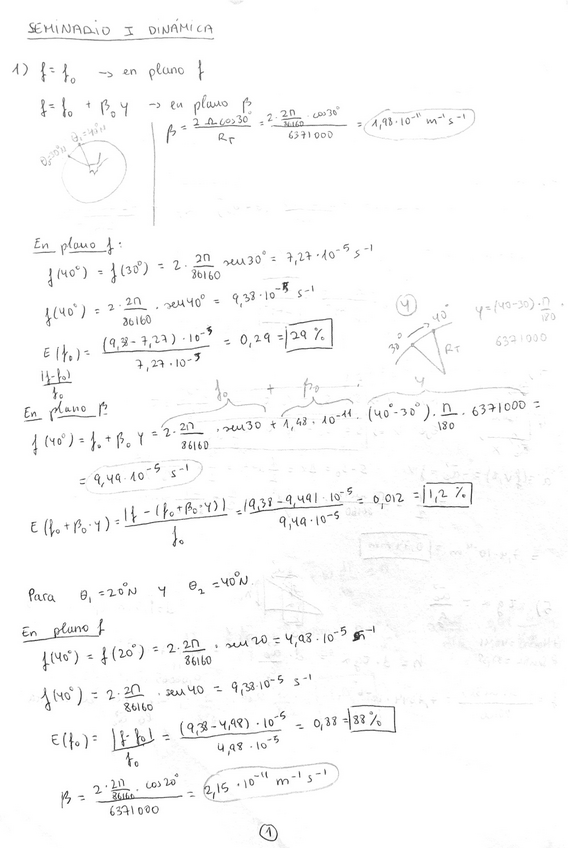 SEMINARIO I DINÁMICA
1) f = f₀ → en plano f
f = f₀ + β₀ y → en plano β
β = 2 Ω cos30° / R_T = 2 · 2π/86160 · cos30° / 6371000 = 1,98 · 10⁻¹¹ m⁻¹ s⁻¹
θ₁=30°N θ₂=40°N
En plano f:
f(40°) = f(30°) = 2 · 2π/86160 sen30° = 7,27 · 10⁻⁵ s⁻¹
f(40°) = 2 · 2π/86160 · sen40° = 9,38 · 10⁻⁵ s⁻¹
E(f₀) = (9,38 - 7,27) · 10⁻⁵ / 7,27 · 10⁻⁵ = 0,29 = 29 %
|f-f₀| / f₀
y
30° 40° R_T
y = (40-30) · π/180 · 6371000
f₀ + β₀ · y
En plano β
f(40°) = f₀ + β₀ y = 2 · 2π/86160 · sen30 + 1,48 · 10⁻¹¹ · (40°-30°) · π/180 · 6371000 =
= 9,49 · 10⁻⁵ s⁻¹
E(f₀ + β₀ · y) = |f - (f₀ + β₀ · y)| / f₀ = |9,38 - 9,49| · 10⁻⁵ / 9,49 · 10⁻⁵ = 0,012 = 1,2 %
Para θ₁ = 20°N y θ₂ = 40°N
En plano f
f(40°) = f(20°) = 2 · 2π/86160 · sen20 = 4,98 · 10⁻⁵ s⁻¹
f(40°) = 2 · 2π/86160 · sen40 = 9,38 · 10⁻⁵ s⁻¹
E(f₀) = |f - f₀| / f₀ = (9,38 - 4,98) · 10⁻⁵ / 4,98 · 10⁻⁵ = 0,88 = 88 %
β = 2 · 2π/86160 · cos20° / 6371000 = 2,15 · 10⁻¹¹ m⁻¹ s⁻¹
1